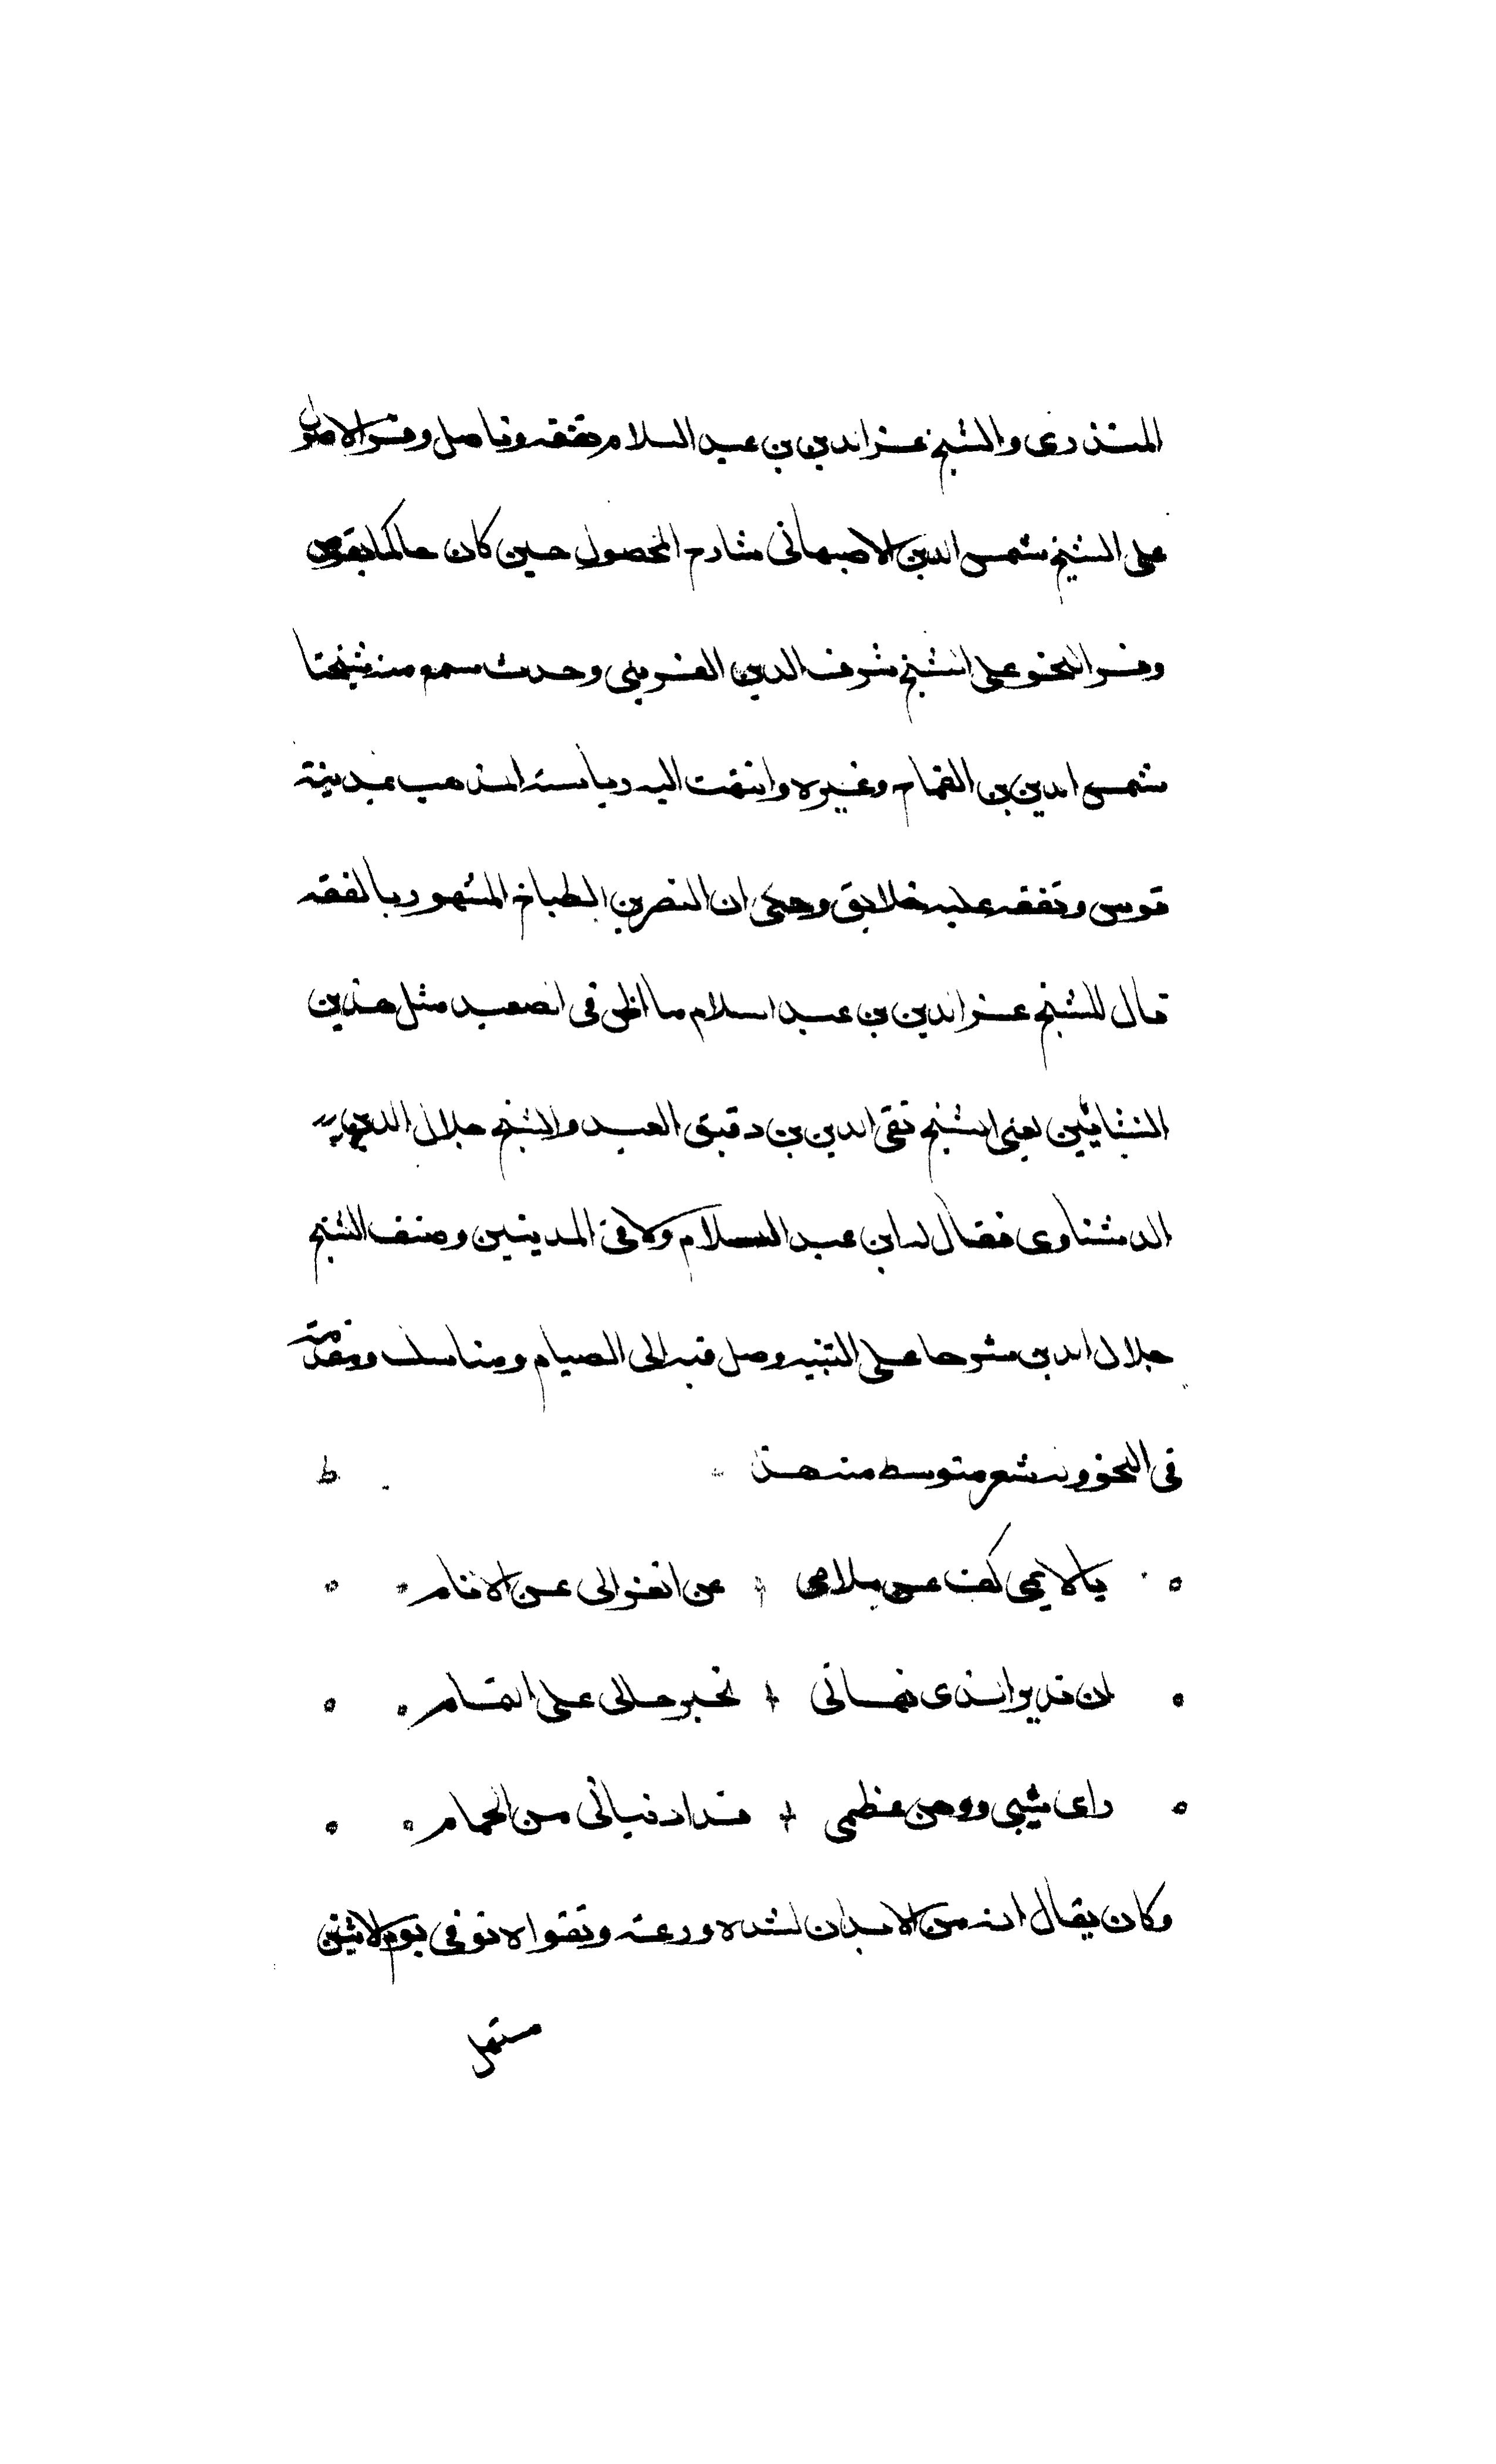 المنذرى والشيخ عز الدين بن عبد السلام تفقه وتاصل وقرا الاصول
على الشيخ شمس الدين الاصبهانى شارح المحصول حين كان حاكما بقوص
وقرا النحو على الشيخ شرف الدين المرسى وحدث سمع منه شيخنا
شمس الدين بن القماح وغيره وانتهت اليه رياسة المذهب بمدينة
قوص وتفقه عليه خلايق وحكى ان النصر بن الطباخ المشهور بالفقه
قال للشيخ عز الدين بن عبد السلام ما اظن فى الصعيد مثل هذين
الشابين يعنى الشيخ تقى الدين بن دقيق العيد والشيخ جلال الدين
الدشناوى فقال له ابن عبد السلام ولا فى المدينتين وصنف الشيخ
جلال الدين شرحا على التنبيه وصل فيه الى الصيام ومناسك ومقدمة
فى النحو وله شعر متوسط منه هذا
يا لايمى كف عن ملامى عن انعزالى عن الانام
ان نذير الذى نهانى يخبر حالى على التمام
راى شيبى ووهن عظمى قد ادنيانى من الحمام
وكان يقال انه من الابدال لشدة ورعه وتقواه توفى يوم الاثنين
مستهل